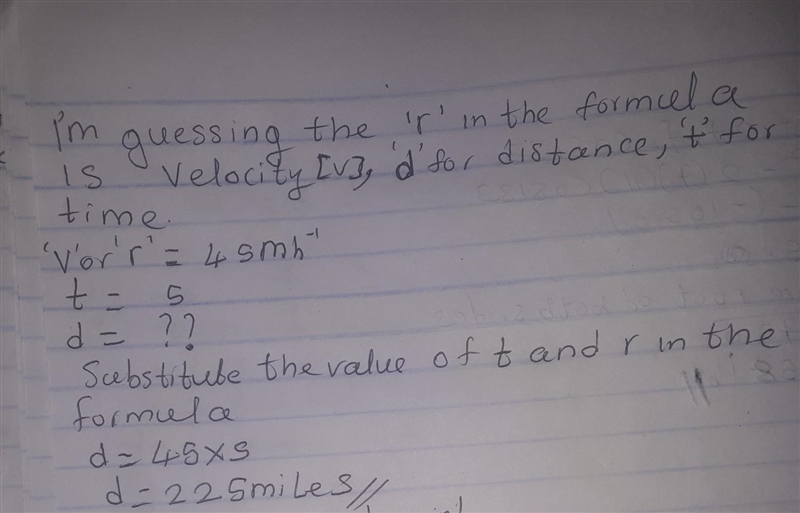 I'm guessing the 'r' in the formula
is velocity [v], 'd' for distance, 't' for
time.
'V' or 'r' = 45mh⁻¹
t = 5
d = ??
Substitute the value of t and r in the
formula
d = 45x5
d = 225miles//